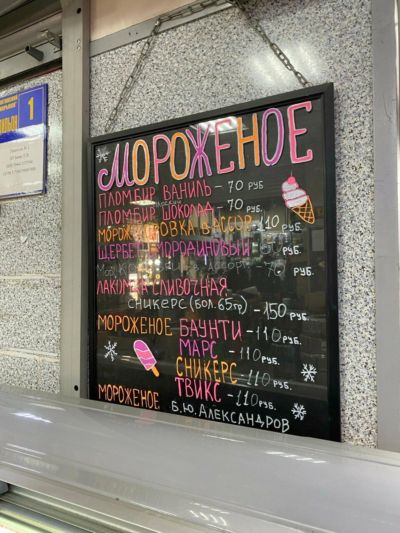 1
МОРОЖЕНОЕ
ПЛОМБИР ВАНИЛЬ - 70 РУБ.
ПЛОМБИР ШОКОЛАД - 70 РУБ.
110 РУБ.
РУБ.
РУБ.
ЛАКОМКА СЛИВОЧНАЯ
СНИКЕРС (БОЛ. 65гр) - 150 РУБ.
МОРОЖЕНОЕ БАУНТИ - 110 РУБ.
МАРС - 110 РУБ.
СНИКЕРС - 110 РУБ.
ТВИКС - 110 РУБ.
МОРОЖЕНОЕ Б.Ю.АЛЕКСАНДРОВ